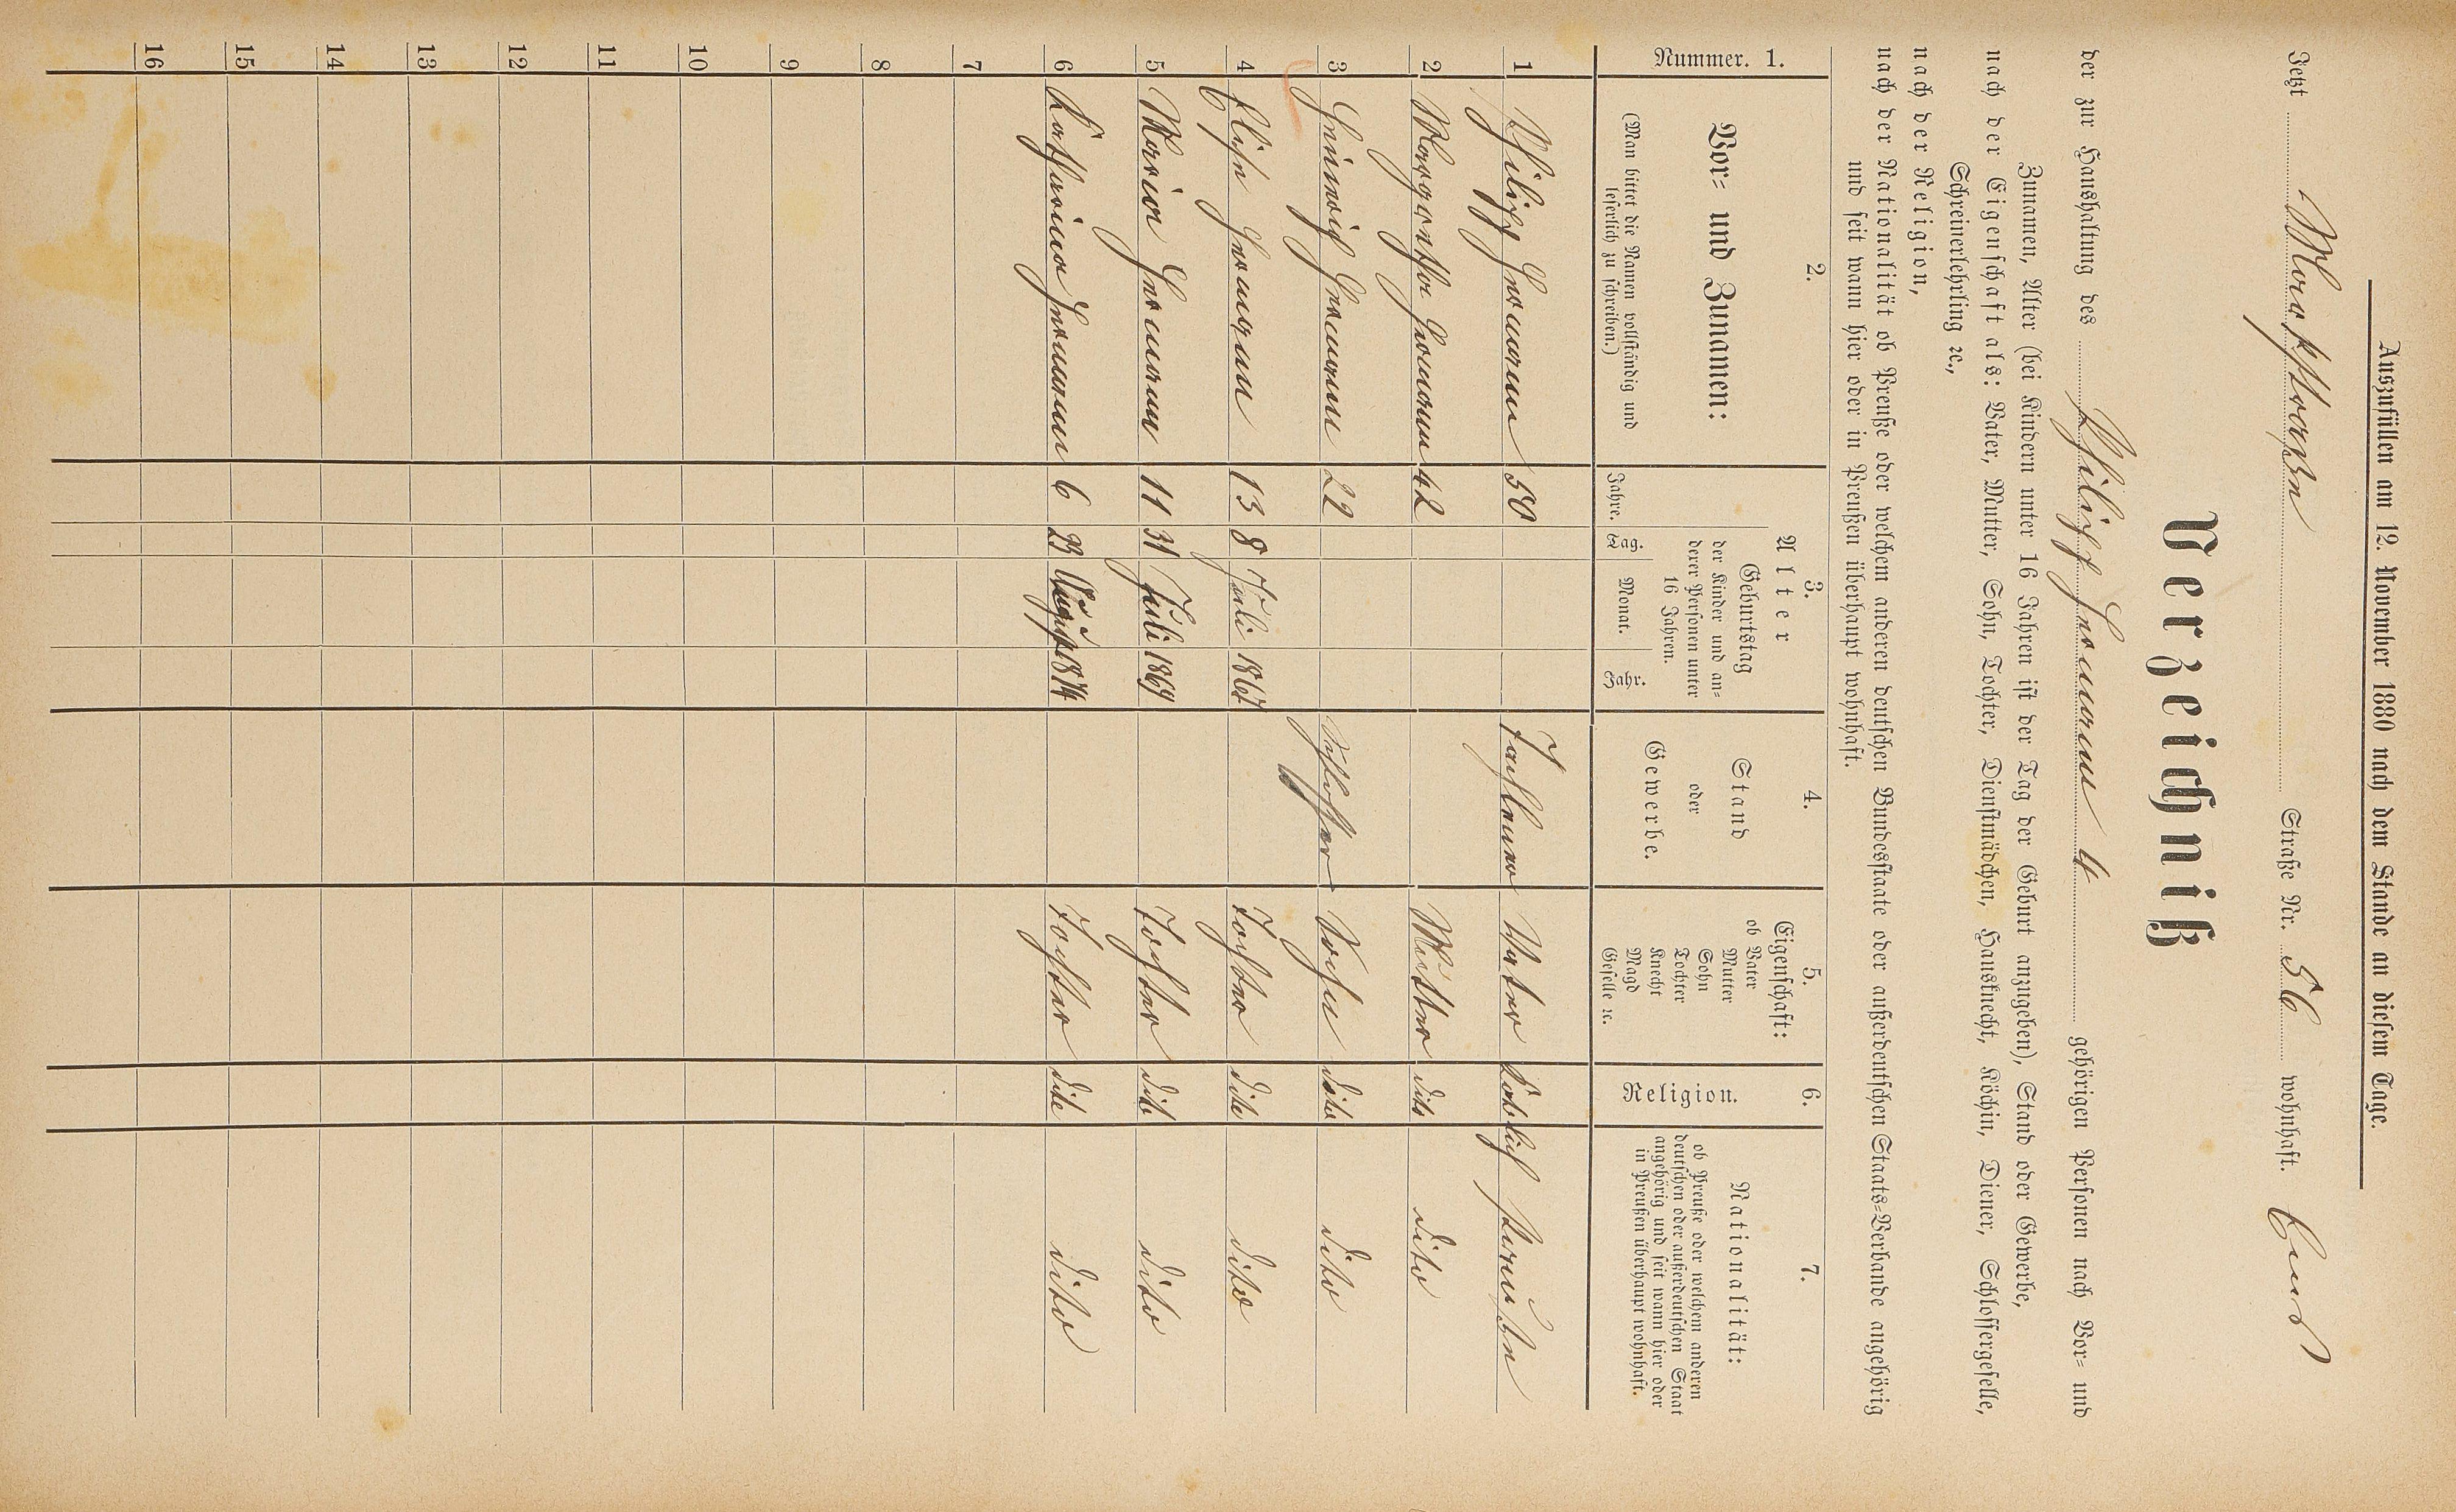 Auszufüllen am 12. November 1880 nach dem Stande an diesem Tage.
Jetzt Marktstraße Straße Nr. 56 wohnhaft. Ems
Verzeichniß
der zur Haushaltung des Philipp gehörigen Personen nach Vor- und
Zunamen, Alter (bei Kindern unter 16 Jahren ist der Tag der Geburt anzugeben), Stand oder Gewerbe,
nach der Eigenschaft als: Vater, Mutter, Sohn, Tochter, Dienstmädchen, Hausknecht, Köchin, Diener, Schlossergeselle,
Schreinerlehrling ꝛc.,
nach der Religion,
nach der Nationalität ob Preuße oder welchem anderen deutschen Bundesstaate oder außerdeutschen Staats-Verbande angehörig
und seit wann hier oder in Preußen überhaupt wohnhaft.
Nummer. 1.
2.
Vor- und Zunamen:
(Man bittet die Namen vollständig und
leserlich zu schreiben.)
3.
Alter
Geburtstag
der Kinder und an-
derer Personen unter
16 Jahren.
Jahre. Tag. Monat. Jahr.
4.
Stand
oder
Gewerbe.
5.
Eigenschaft:
ob Vater
Mutter
Sohn
Tochter
Knecht
Magd
Geselle ꝛc.
6.
Religion.
7.
Nationalität:
ob Preuße oder welchem anderen
deutschen oder außerdeutschen Staat
angehörig und seit wann hier oder
in Preußen überhaupt wohnhaft.
1 Philipp 50 Taglöhner Vater Preuße
2 Margaretha 42 Mutter dito dito
3 22 Schlosser Sohn dito dito
4 Elise 13 8 Juli 1867 Tochter dito dito
5 Maria 11 31 Juli 1869 Tochter dito dito
6 Katharina 6 23 August 1874 Tochter dito dito
7
8
9
10
11
12
13
14
15
16